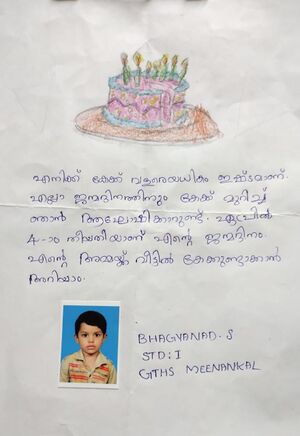 എനിക്ക് കേക്ക് വളരെയധികം ഇഷ്ടമാണ്.
എല്ലാ ജന്മദിനത്തിനും കേക്ക് മുറിച്ച്
ഞാൻ ആഘോഷിക്കാറുണ്ട്. ഏപ്രിൽ
4-ാം തീയതിയാണ് എന്റെ ജന്മദിനം.
എന്റെ അമ്മയ്ക്ക് വീട്ടിൽ കേക്കുണ്ടാക്കാൻ
അറിയാം.
BHAGYANAD.S
STD: I
GTHS MEENANKAL